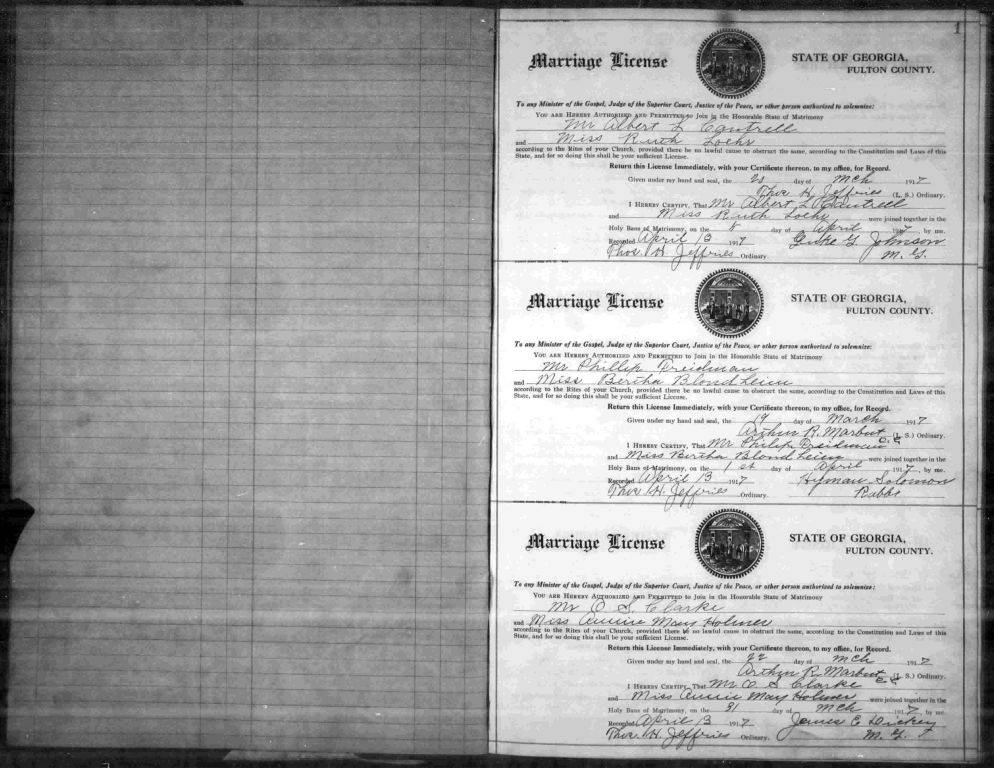 1
Marriage License
STATE OF GEORGIA,
FULTON COUNTY.
To any Minister of the Gospel, Judge of the Superior Court, Justice of the Peace, or other person authorized to solemnize:
YOU ARE HEREBY AUTHORIZED AND PERMITTED to Join in the Honorable State of Matrimony
Mr Albert L Cantrell
and Miss Ruth Loehr
according to the Rites of your Church, provided there be no lawful cause to obstruct the same, according to the Constitution and Laws of this
State, and for so doing this shall be your sufficient License.
Return this License Immediately, with your Certificate thereon, to my office, for Record.
Given under my hand and seal, the day of Mch 1917
Thos H. Jeffries (L. S.) Ordinary.
I HEREBY CERTIFY, That Mr Albert L Cantrell
and Miss Ruth Loehr were joined together in the
Holy Bans of Matrimony, on the 8 day of April 1917, by me.
Recorded April 13 1917 Luke G. Johnson
Thos. H. Jeffries Ordinary. M. G.
Marriage License
STATE OF GEORGIA,
FULTON COUNTY.
To any Minister of the Gospel, Judge of the Superior Court, Justice of the Peace, or other person authorized to solemnize:
YOU ARE HEREBY AUTHORIZED AND PERMITTED to Join in the Honorable State of Matrimony
Mr Phillip Dreidman
and Miss Bertha Blondheim
according to the Rites of your Church, provided there be no lawful cause to obstruct the same, according to the Constitution and Laws of this
State, and for so doing this shall be your sufficient License.
Return this License Immediately, with your Certificate thereon, to my office, for Record.
Given under my hand and seal, the 19 day of March 1917
Arthur R. Marbut C. C. (L. S.) Ordinary.
I HEREBY CERTIFY, That Mr Philip Dreidman
and Miss Bertha Blondheim were joined together in the
Holy Bans of Matrimony, on the 1st day of April 1917, by me.
Recorded April 13 1917 Hyman Solomon
Thos. H. Jeffries Ordinary. Rabbi
Marriage License
STATE OF GEORGIA,
FULTON COUNTY.
To any Minister of the Gospel, Judge of the Superior Court, Justice of the Peace, or other person authorized to solemnize:
YOU ARE HEREBY AUTHORIZED AND PERMITTED to Join in the Honorable State of Matrimony
Mr O S. Clarke
and Miss Annie May Holmes
according to the Rites of your Church, provided there be no lawful cause to obstruct the same, according to the Constitution and Laws of this
State, and for so doing this shall be your sufficient License.
Return this License Immediately, with your Certificate thereon, to my office, for Record.
Given under my hand and seal, the 22 day of Mch 1917
Arthur R. Marbut C. C. (L. S.) Ordinary.
I HEREBY CERTIFY, That Mr O S Clarke
and Miss Annie May Holmes were joined together in the
Holy Bans of Matrimony, on the 31 day of Mch 1917, by me
Recorded April 13 1917 James E Dickey
Thos. H. Jeffries Ordinary. M. G.